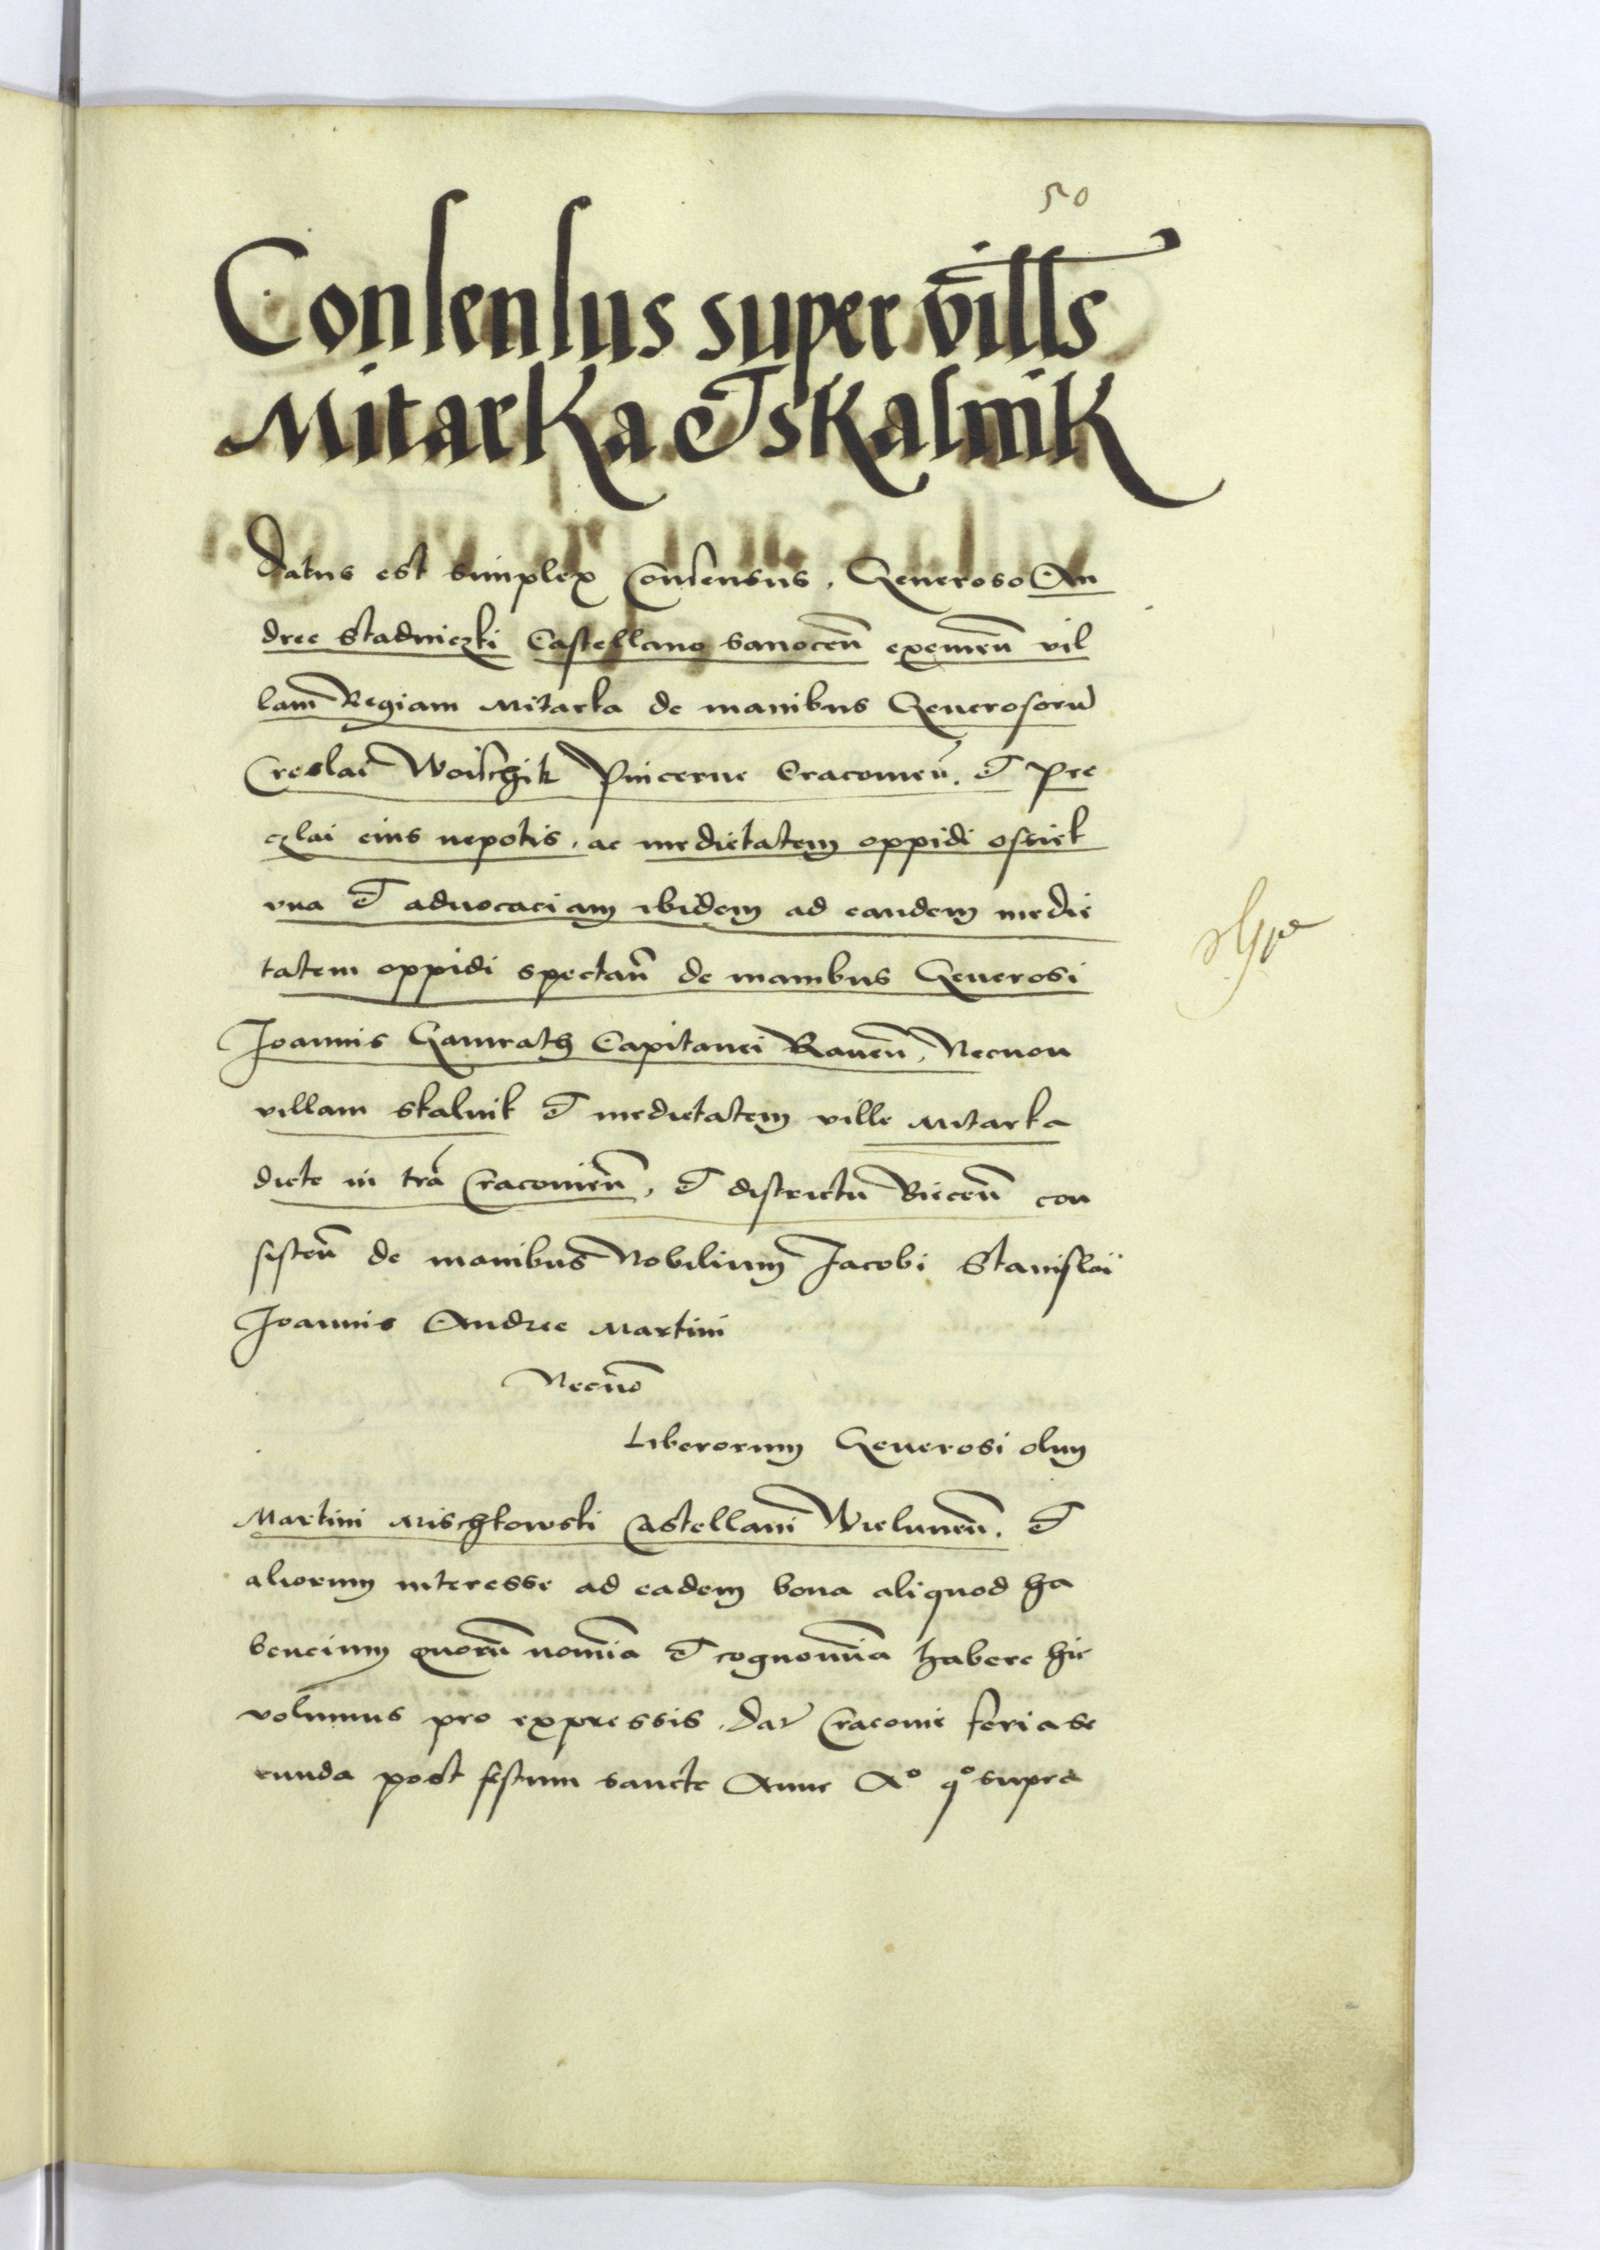 50
Consensus super vills
Mitarka et skalnik
Datus est simplex Consensus, Generoso An
dree Stadniczki Castellano Sanocen̄ eximen̄ vil
lam̄ Regiam Mitarka de manibus Generosorū
Creslai Woischik Pincerne Cracovien̄. et Pre
czlai eius nepotis, ac medietatem oppidi osviek
vna et advocaciam ibidem ad eandem medie
tatem oppidi spectan̄ de manibus Generosi
Joannis Gamrath Capitanei Raven̄, Necnon
villam Skalnik et medietatem ville Mitarka
dicte in trā Cracovien̄, et districtu Biecen̄ con
sisten̄ de manibus Nobilium Jacobi Stanislai
Joannis Andree Martini
Necnō
Liberorum Generosi olim
Martini Mischkowski Castellani Wielunen̄. et
aliorum interesse ad eadem bona aliquod ha
bencium quorū nomīa et cognomīa habere hic
volumus pro expressis. Dat Cracovie feria se
cunda post festum sancte Anne Aº qº supra